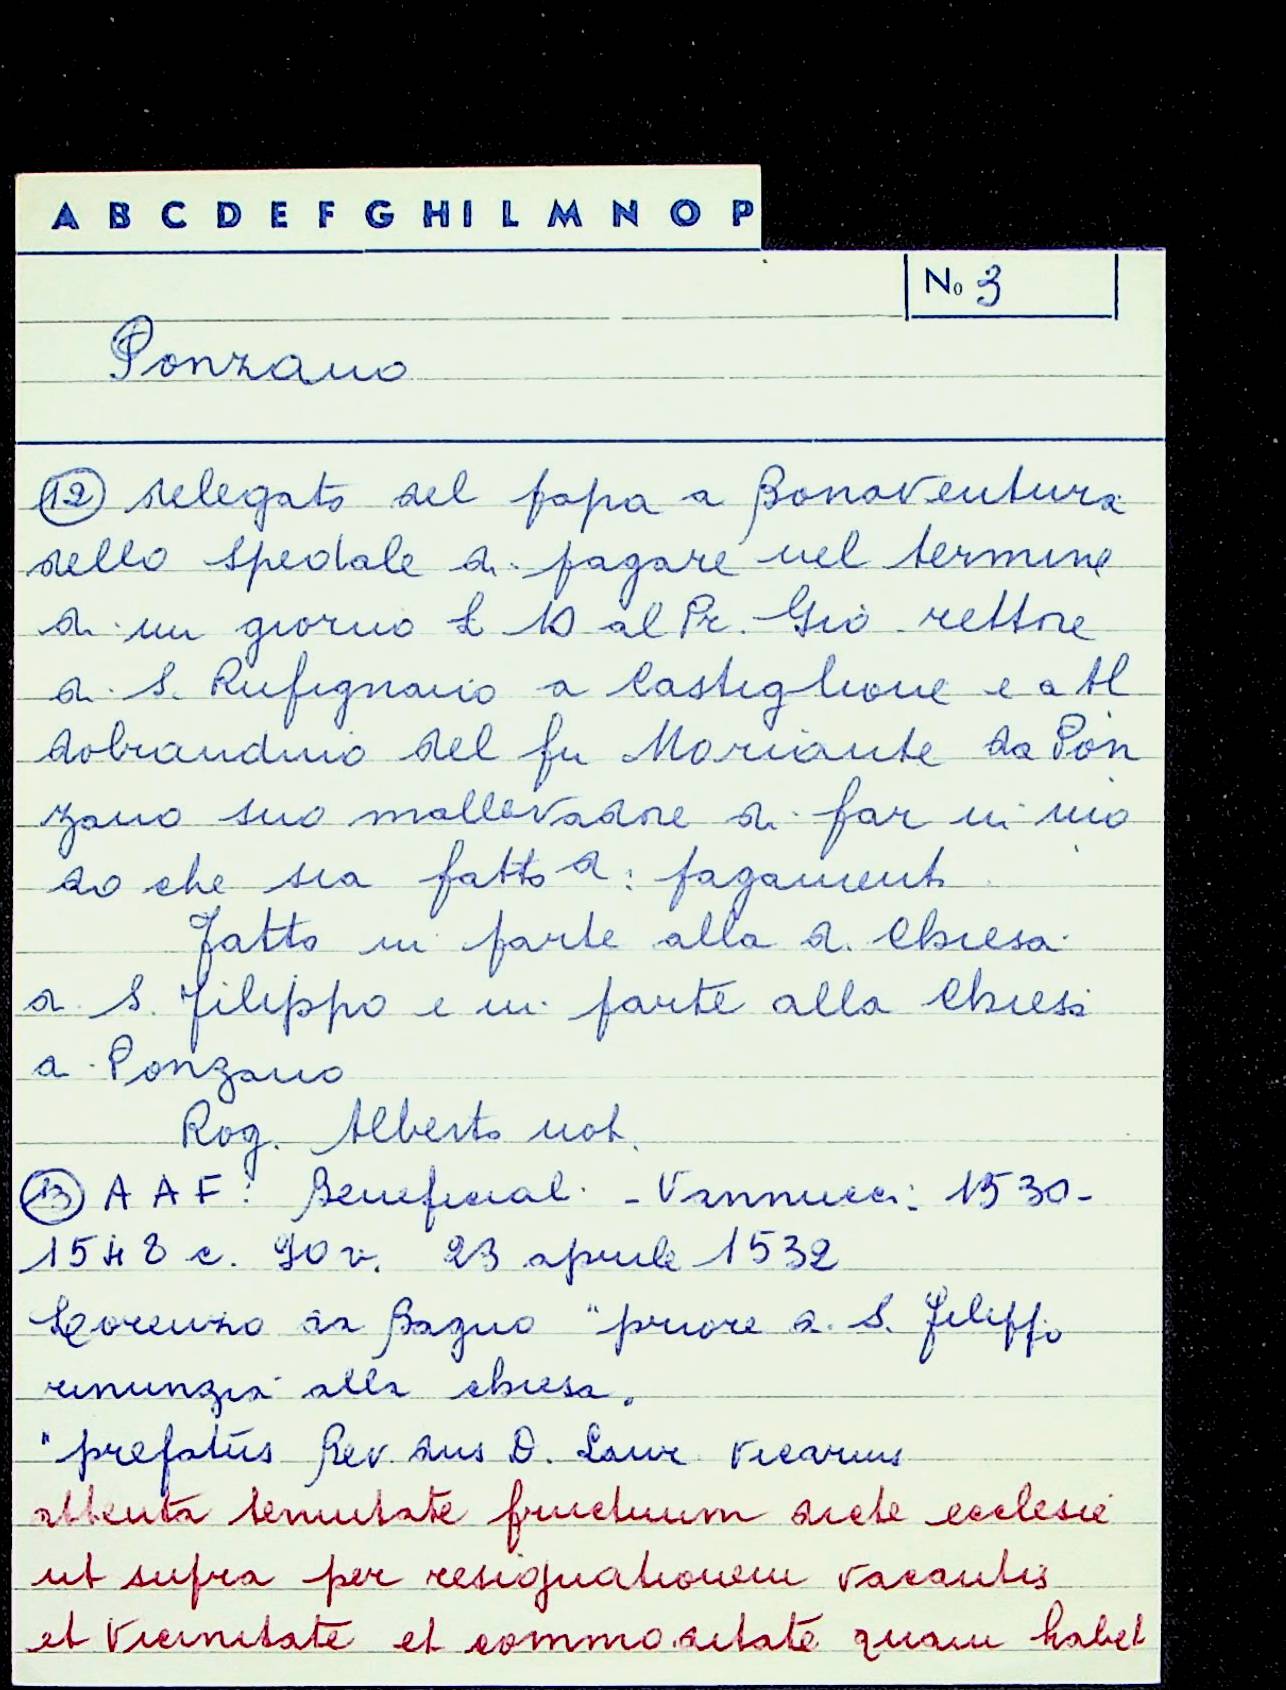 A B C D E F G H I L M N O P
No 3
Ponzano
12 delegato del papa a Bonaventura
dello Spedale di pagare nel termine
di un giorno L 10 al Pr. Giò rettore
di S. Rufignano a Castiglione e a Al
dobrandino del fu Moriante da Pon
zano suo mallevadore di far in mo
do che sia fatto d: pagamento
Fatto in parte alla d. Chiesa
di S. Filippo e in parte alla Chiesa
di Ponzano
Rog. Alberto not.
13 A A F: Beneficial. - Vannucci: 1530-
1548 c. 90 v. 23 aprile 1532
Lorenzo da Bagno "priore di S. Filippo
rinunzia alla chiesa.
"prefatus Rev. dus D. Laur. Vicarius
attenta tenuitate fructuum dicte ecclesie
ut supra per resignationem vacantis
et vicinitate et commoditate quam habet